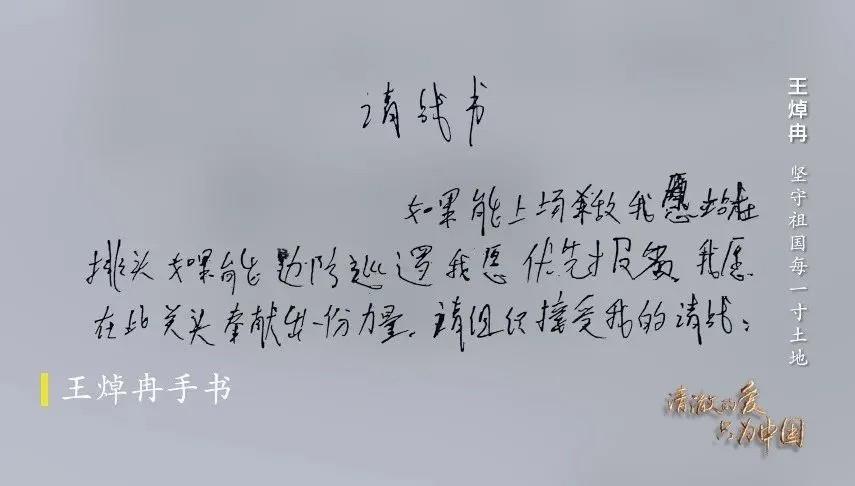 请战书
如果能上场杀敌我愿站在
排头如果能边防巡逻我愿优先报名我愿
在此关头奉献出一份力量。请组织接受我的请战:
王焯冉手书
王焯冉 坚守祖国每一寸土地
清澈的爱
只为中国